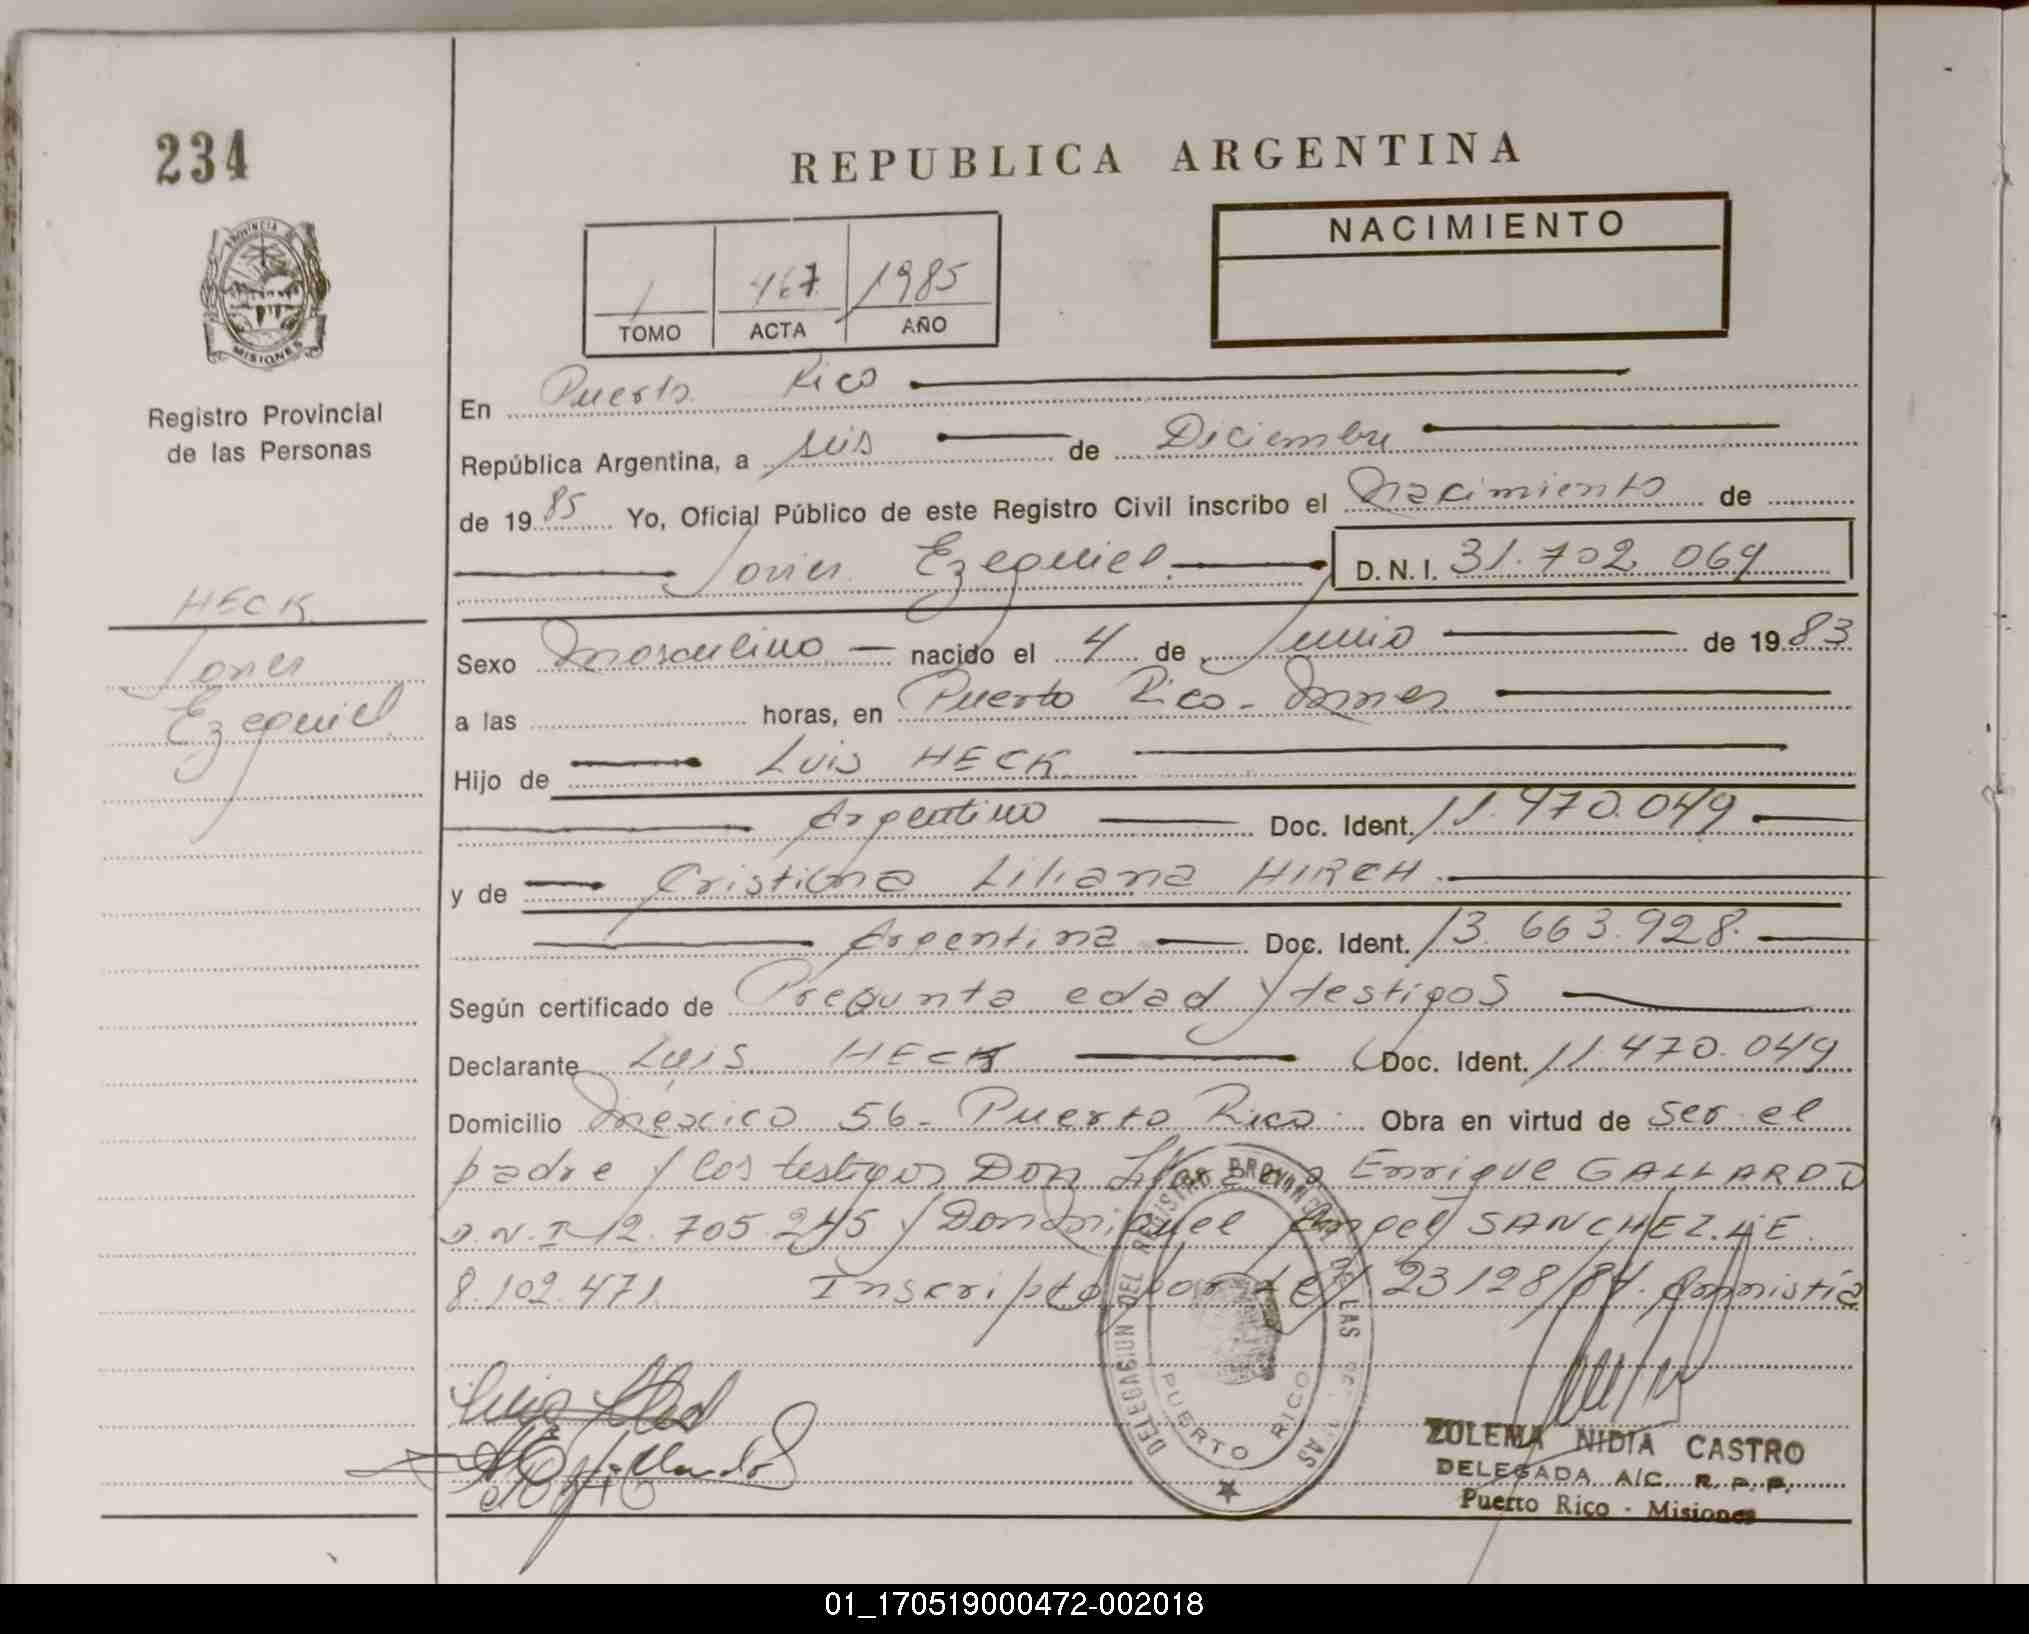 234
REPUBLICA ARGENTINA
PROVINCIA DE
MISIONES
Registro Provincial
de las Personas
1 467 1985
TOMO ACTA AÑO
NACIMIENTO
En Puerto Rico
República Argentina, a seis de Diciembre
de 1985 Yo, Oficial Público de este Registro Civil inscribo el Nacimiento de
Ezequiel. D.N.I. 31.702.069
HECK
Ezequiel
Sexo Masculino nacido el 4 de Junio de 1983
a las horas, en Puerto Rico - Mnes
Hijo de Luis HECK
Argentino Doc. Ident. 11.470.049
y de Cristina Liliana HIRCH
Argentina Doc. Ident. 13.663.928
Según certificado de Pregunta edad y testigos
Declarante Luis HECK Doc. Ident. 11.470.049
Domicilio México 56 - Puerto Rico. Obra en virtud de ser el
padre y los testigos Don Enrique GALLARDO
D.N.I 12.705.245 y Don Miguel Angel SANCHEZ. L.E.
8.102.471. Inscripto por Ley 23128/84. Amnistía
DELEGACION DEL REGISTRO PROVINCIAL DE LAS
PUERTO RICO
ZULEMA NIDIA CASTRO
DELEGADA A/C. R. P. P.
Puerto Rico - Misiones
01_170519000472-002018